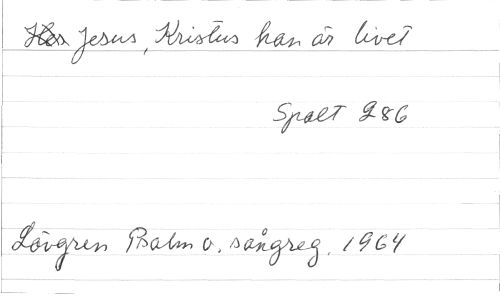 Jesus, Kristus han är livet
Spalt 286
Lövgren Psalm o. sångreg. 1964